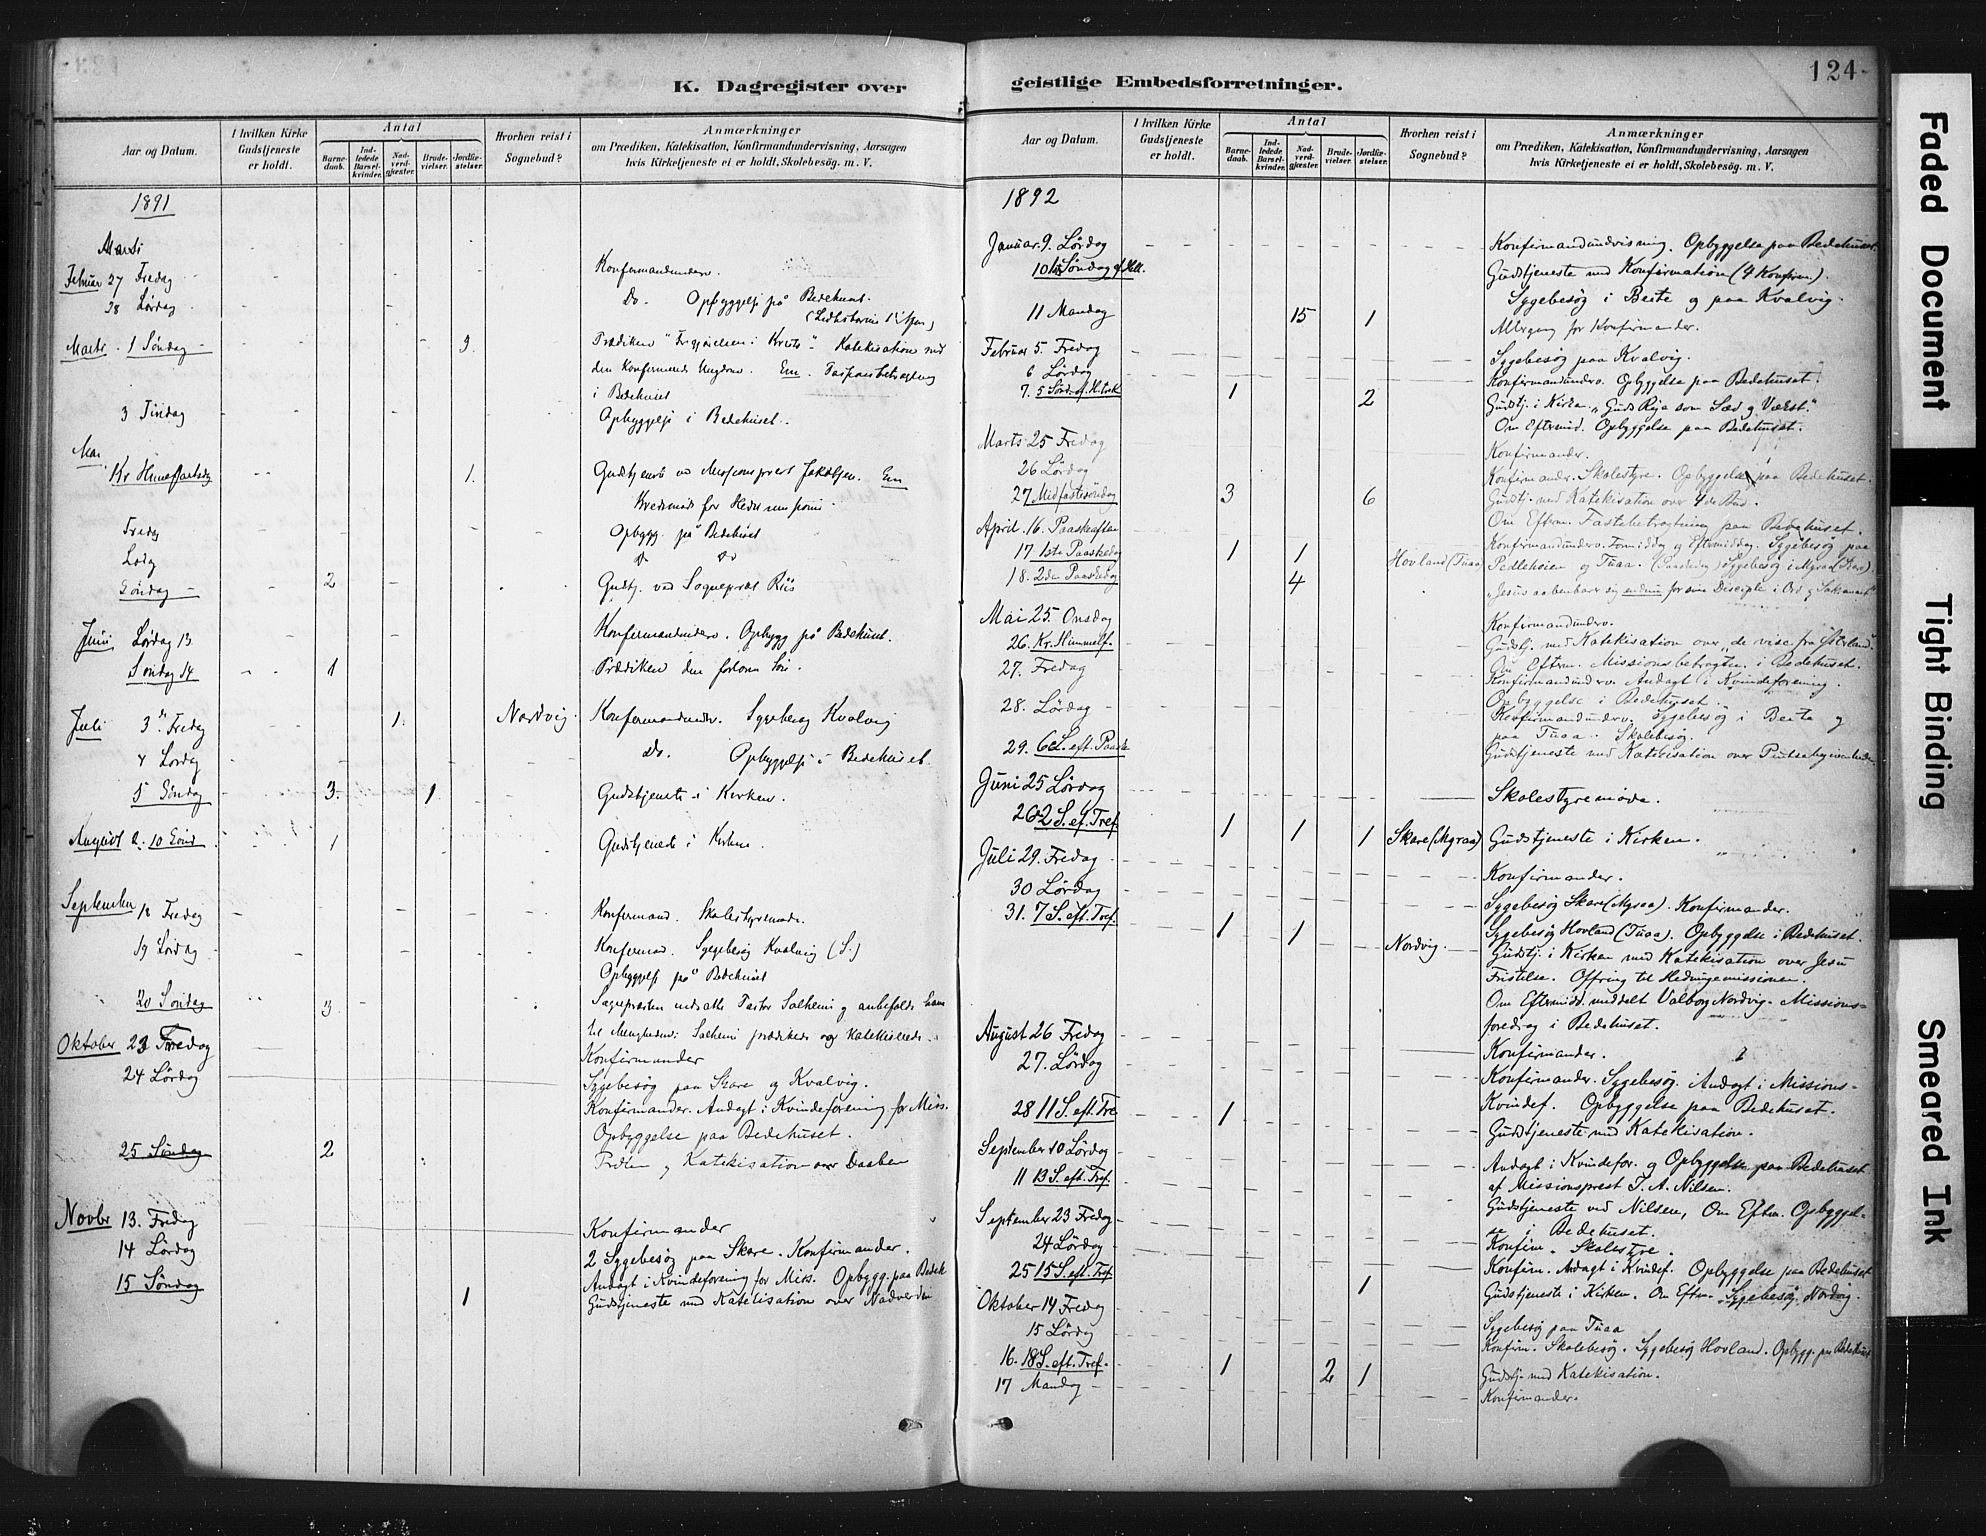 K. Dagregister over
Aar og Datum.
I hvilken Kirke Gudstjeneste er holdt.
Antal
Barnedaab.
Indledede Barselkvinder.
Nadverdgjæster.
Brudevielser.
Jordfæstelser.
Hvorhen reist i Sognebud?
Anmærkninger
om Prædiken, Katekisation, Konfirmandundervisning, Aarsagen
hvis Kirketjeneste ei er holdt, Skolebesøg. m. V.
1891
Marts
Februar 27 Fredag Konfirmandunderv.
28 Lørdag Do. Opbyggelse på Bedehuset.
Marts 1 Søndag 3 Prædiken Katekisation med
den Konfirmerede Ungdom. Em.
i Bedehuset
3 Tirsdag Opbyggelse i Bedehuset.
Mai
Kr Himmelfartsdag 1. Gudstjeneste ved Missionsprest Jakobsen. Em
Fredag Opbygg. på Bedehuset
Lørdag Do Do
Søndag 2 Gudstj. ved Sogneprest Riis
Juni Lørdag 13 Konfirmandunderv. Opbygg på Bedehuset.
Søndag 14 1 Prædiken
Juli 3 Fredag 1. Nordvig. Konfirmandunderv. Sygebesøg Kvalvig
4 Lørdag Do. Opbyggelse i Bedehuset
5 Søndag 3. 1 Gudstjeneste i Kirken.
August 10 Sønd 1 Gudstjeneste i Kirken.
September 18 Fredag Konfirmand. Skolestyremøde.
19 Lørdag Konfirmand. Sygebesøg Kvalvig (S.)
Opbyggelse på Bedehuset
20 Søndag 3 Sognepresten indsatte Pastor Salhem og anbefalede ham
til Menigheden: Salhem prædikede og katekiserede.
Oktober 23 Fredag Konfirmander
24 Lørdag Sygebesøg paa Skare og Kvalvig.
Konfirmander. Andagt i Kvindeforening for Miss.
Opbyggelse paa Bedehuset.
25 Søndag 2 Prdken og Katekisation over Daaben
Novbr 13. Fredag Konfirmander
14 Lørdag 2 Sygebesøg paa Skare. Konfirmander.
Andagt i Kvindeforening for Miss. Opbygg. paa Bedeh
15 Søndag 1 Gudstjeneste med Katekisation over Nadverden
geistlige Embedsforretninger.
124
Aar og Datum.
I hvilken Kirke Gudstjeneste er holdt.
Antal
Barnedaab.
Indledede Barselkvinder.
Nadverdgjæster.
Brudevielser.
Jordfæstelser.
Hvorhen reist i Sognebud?
Anmærkninger
om Prædiken, Katekisation, Konfirmandundervisning, Aarsagen
hvis Kirketjeneste ei er holdt, Skolebesøg. m. V.
1892
Januar. 9. Lørdag Konfirmandundvisning. Opbyggelse paa Bedehuset.
10 Søndag Gudstjeneste med Konfirmation (4 Konfirm).
Sygebesøg i Beite og paa Kvalvig.
11 Mandag 15 1 Altergang for Konfirmander.
Februar 5. Fredag Sygebesøg paa Kvalvig.
6 Lørdag Konfirmandunderv. Opbyggelse paa Bedehuset.
7. 5 Sønd. 1 2 Gudstj. i Kirken. "Guds Rige som Sæd og Vækst."
Om Eftermid. Opbyggelse paa Bedehuset.
Marts 25 Fredag Konfirmander.
26 Lørdag Konfirmander. Skolestyre. Opbyggelse paa Bedehuset.
27 Midfastesøndag 3 6 Gudstj. med Katekisation over 4de Bud.
Om Efterm. Fastebetragtning paa Bedehuset.
April. 16. Paaskeaften Konfirmandunderv. Formiddag og Eftermiddag. Sygebesøg paa
17. 1ste Paaskedag 1 1 Hovland (Tuaa) Pedlehoien og Tuaa. Sygebesøg i Myraa (Skare).
18. 2den Paaskedag 4 "Jesus aabenbarer sig endnu for sine Disciple i Ord og Sakrament"
Mai 25. Onsdag Konfirmandunderv.
26. Kr. Himmelf. Gudstj. med Katekisation over "de vise fra Østerland."
Om Efterm. Missionsbetragtn. i Bedehuset.
27. Fredag Konfirmandunderv. Andagt i Kvindeforening.
Opbyggelse i Bedehuset.
28. Lørdag Konfirmandunderv. Sygebesøg i Beite og
paa Tuaa. Skolebesøg.
29. 6 S. eft. Paaske Gudstjeneste med Katekisation over
Juni 25 Lørdag Skolestyremøde.
26 2 S. ef. Tref. 1 1 1 Skare (Myraa) Gudstjeneste i Kirken.
Juli 29. Fredag Konfirmander.
30 Lørdag Sygebesøg Skare (Myraa). Konfirmander.
Sygebesøg Hovland (Tuaa). Opbyggelse i Bedehuset.
31. 7 S. eft. Tref. 1 1 Nordvig. Gudstj. i Kirken med Katekisation over Jesu
Fristelse. Offring til Hedningemissionen.
Om Eftermidd. meddelt Valborg Nordvig. Missions-
foredrag i Bedehuset.
August 26 Fredag Konfirmander.
27. Lørdag Konfirmander. Sygebesøg. Andagt i Missions-
Kvindef. Opbyggelse paa Bedehuset.
28 11 S. eft. Tre 1 Gudstjeneste med Katekisation.
September 10 Lørdag Andagt i Kvindefor. og Opbyggelse paa Bedehuset
af Missionsprest T. A. Nilsen.
11 13 S. eft. Tref. Gudstjeneste ved Nilsen, Om Eftm. Opbyggel-
se i Bedehuset.
September 23 Fredag Konfirm. Skolestyre.
24 Lørdag Konfirm. Andagt i Kvindef. Opbyggelse paa Bedehuset
25 15 S. eft. Tref 1 Gudstjeneste i Kirken. Om Eftm. Sygebesøg Nordvig.
Oktober 14 Fredag Sygebesøg paa Tuaa
15 Lørdag Konfirm. Skolebesøg. Sygebesøg Hovland. Opbygg. paa Bedehuset
16. 18 S. eft. Tref. 1 2 1 Gudstj. med Katekisation.
17 Mandag Konfirmander.
Faded Document
Tight Binding
Smeared Ink